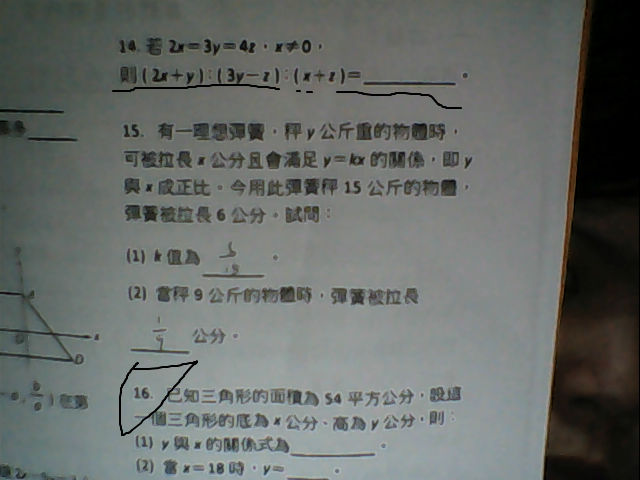 14. 若 2x=3y=4z，x≠0，
則(2x+y):(3y-z):(x+z)=________。
15. 有一理想彈簧，秤 y 公斤重的物體時，
可被拉長 x 公分且會滿足 y=kx 的關係，即 y
與 x 成正比。今用此彈簧秤 15 公斤的物體，
彈簧被拉長 6 公分。試問：
(1) k 值為________。
(2) 當秤 9 公斤的物體時，彈簧被拉長
1/9 公分。
16. 已知三角形的面積為 54 平方公分，設這
一個三角形的底為 x 公分、高為 y 公分，則：
(1) y 與 x 的關係式為________。
(2) 當 x=18 時，y=____。